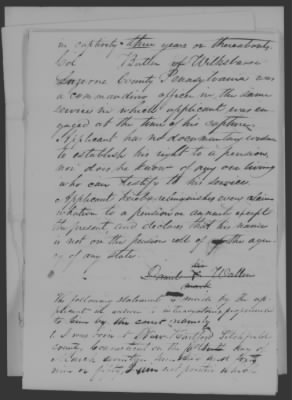 in captivity three years or thereabouts.
Col Butler of Wilksbarre
Luzerne County Pennsylvania was
a commanding officer in the same
service in which applicant was en-
gaged at the time of his capture
Applicant has no documentary evidence
to establish his right to a pension,
nor does he know of any one living
who can testify to his service
Applicant hereby relinquishes every claim
whatever to a pension or annuity except
the present, and declares that his name
is not on the pension roll of the agen
cy of any state.
his
Daniel X Wallen
mark
The following statement is made by the ap-
plicant in answer to interrogatories propounded
to him by the court namely
1. I was born in New Hartford Litchfield
county, Connecticut on the day of
March seventeen hundred and forty
nine or fifty, I am not positive which